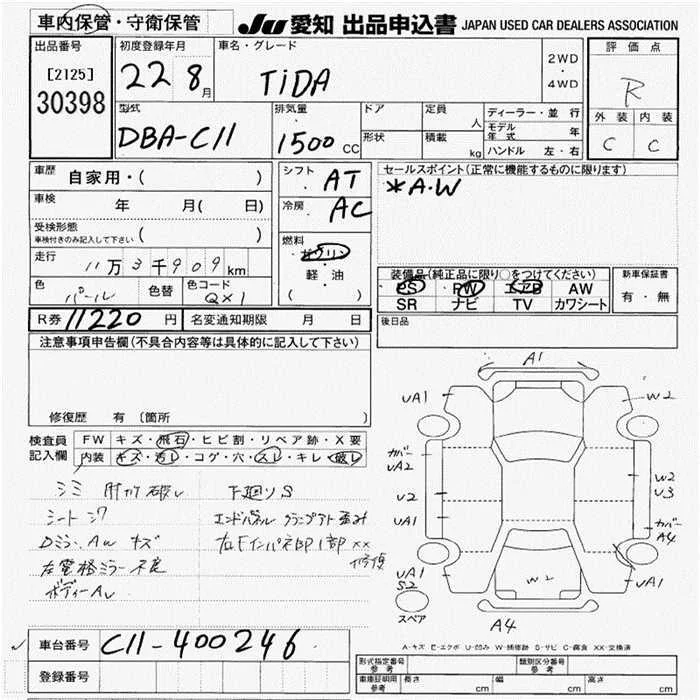 車内保管・守衛保管
JU 愛知 出品申込書 JAPAN USED CAR DEALERS ASSOCIATION
出品番号
[2125]
30398
初度登録年月
22 8月
車名・グレード
TIDA
2WD
・
4WD
評価点
R
外装 内装
C C
型式
DBA-C11
排気量
1500 CC
ドア
形状
定員 人
積載 kg
ディーラー・並行
モデル年式 年
ハンドル 左・右
車歴 自家用・( )
車検 年 月( 日)
受検形態
車検付きのみ記入して下さい ( )
走行 11万3千909km
色 パール
色替
色コード
QX1
シフト AT
冷房 AC
燃料
ガソリン
軽・油
( )
セールスポイント(正常に機能するものに限ります)
*A・W
装備品(純正品に限り○をつけてください)
PS PW エアB AW
SR ナビ TV カワシート
新車保証書
有・無
R券 11220 円
名変通知期限 月 日
後日品
注意事項申告欄(不具合内容等は具体的に記入して下さい)
修復歴 有 〔箇所
検査員
記入欄
FW キズ・飛石・ヒビ割・リペア跡・X要
内装 キズ・汚レ・コゲ・穴・スレ・キレ・破レ
シミ
下廻りS
シート
エンドパネル
Dミラー AW キズ
左電格ミラー不良
修復
ボディーAU
A1
UA1
W2
カバー
UA2
W2
U3
U2
UA1
カバー
A4
UA1
S2
W2
UA1
スペア
A4
A-キズ E-エクボ U-凹み W-補修跡 S-サビ C-腐食 XX-交換済
車台番号 C11-400246
登録番号
形式指定番号
参考
類別区分番号
参考
車庫証明用
参考
長さ cm 幅 cm 高さ cm